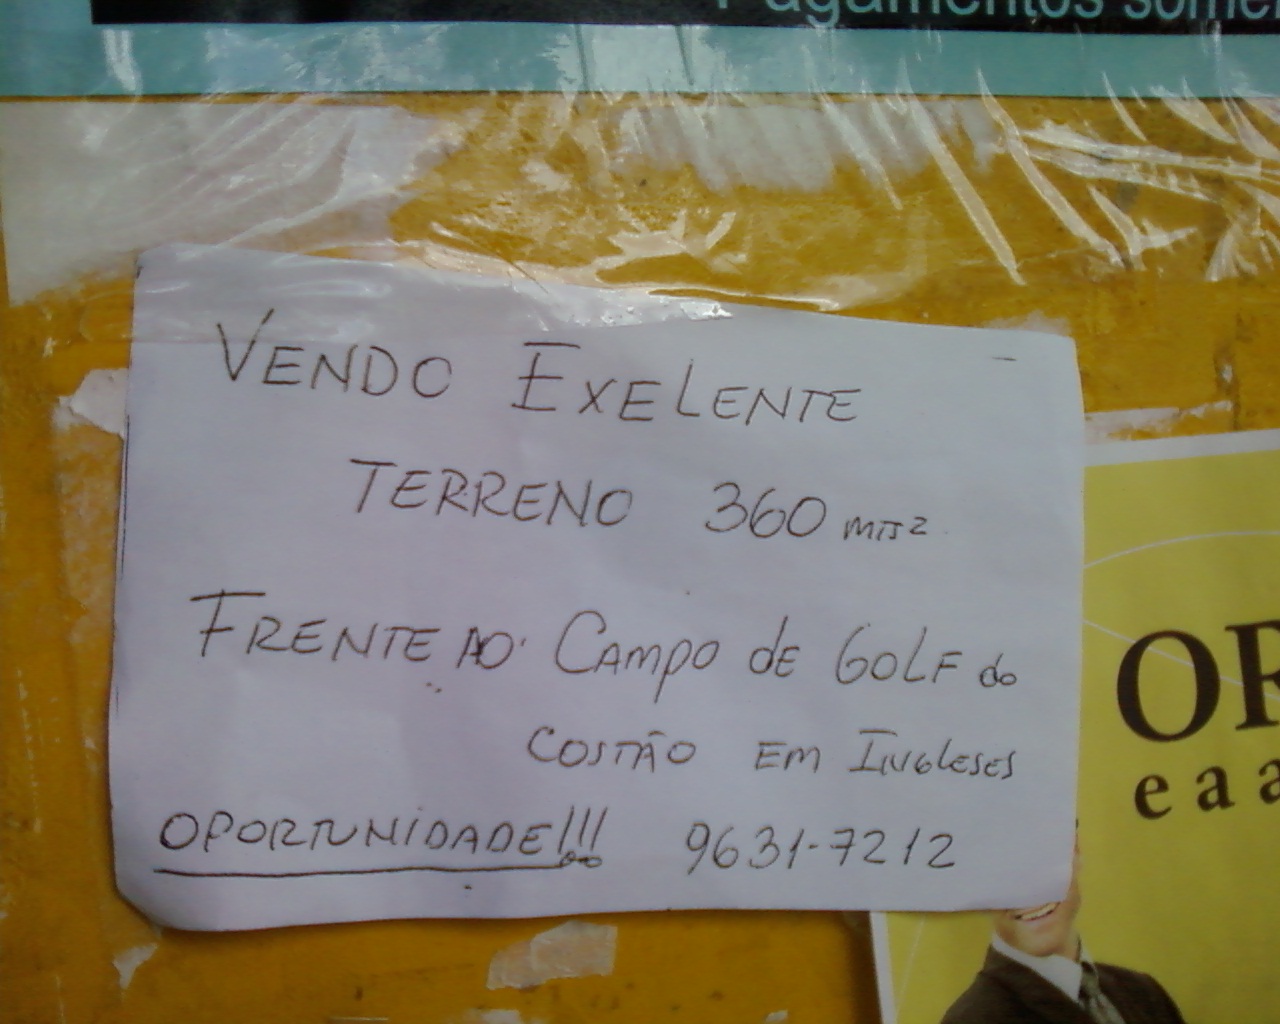 Pagamentos some
VENDO EXELENTE
TERRENO 360 mts²
FRENTE AO CAMPO dE GOLF do
COSTÃO EM INGLESES
OPORTUNIDADE!!! 9631-7212
OR
e a a